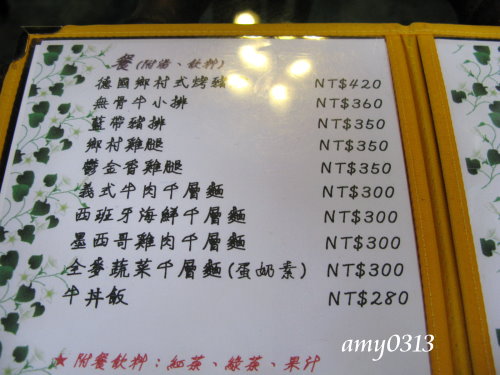 餐(附湯、飲料)
德國鄉村式烤豬 NT$420
無骨牛小排 NT$360
藍帶豬排 NT$350
鄉村雞腿 NT$350
鬱金香雞腿 NT$350
義式牛肉千層麵 NT$300
西班牙海鮮千層麵 NT$300
墨西哥雞肉千層麵 NT$300
全麥蔬菜千層麵(蛋奶素) NT$300
牛丼飯 NT$280
★附餐飲料:紅茶、綠茶、果汁
amy0313